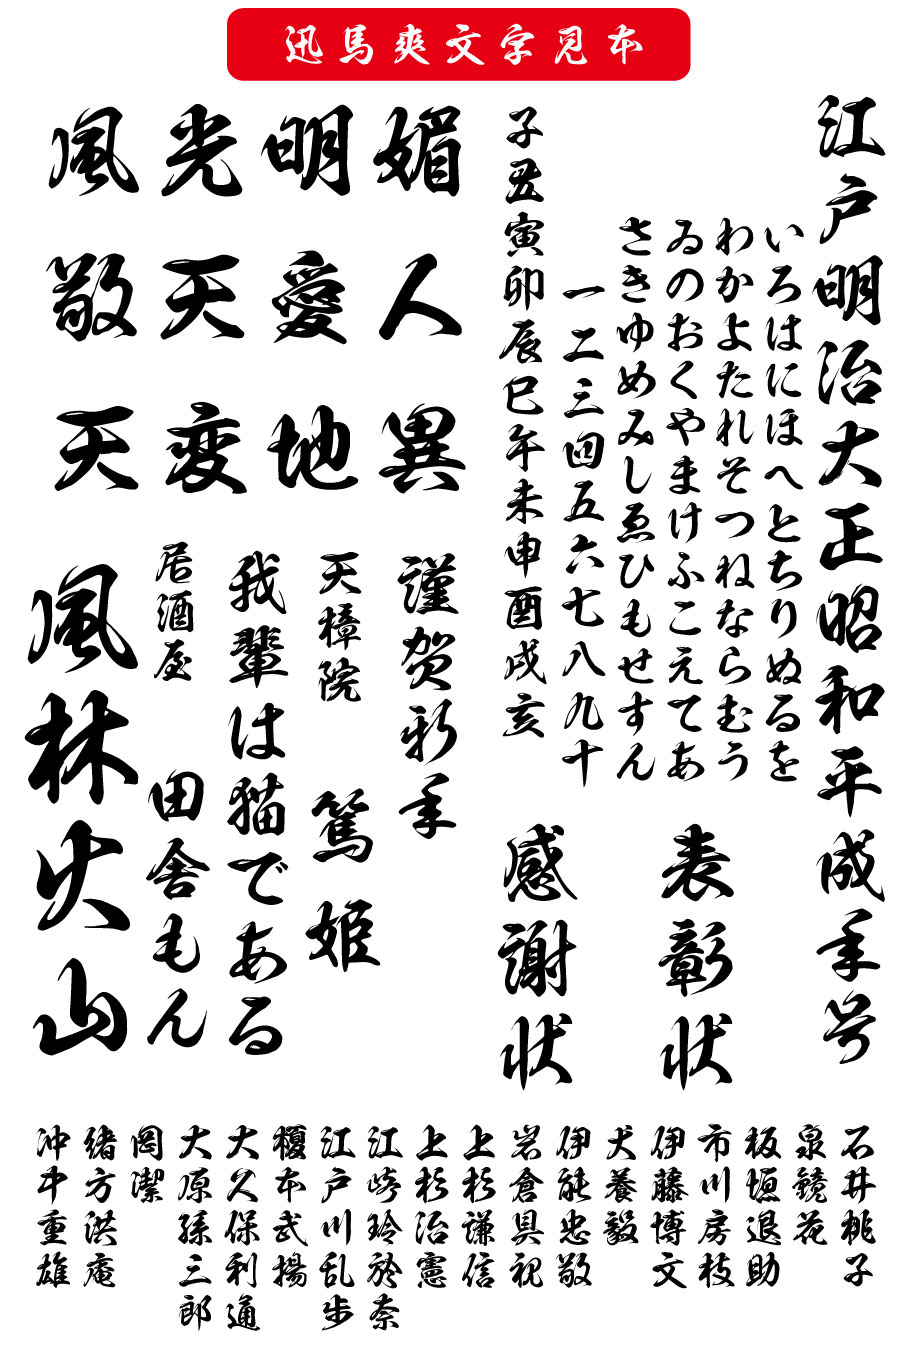 迅馬爽文字見本
江戸明治大正昭和平成年号
いろはにほへとちりぬるを
わかよたれそつねならむう
ゐのおくやまけふこえてあ
さきゆめみしゑひもせすん
一二三四五六七八九十
子丑寅卯辰巳午未申酉戌亥
表彰状
感謝状
風光明媚
敬天愛人
天変地異
謹賀新年
天樟院
篤姫
我輩は猫である
居酒屋
田舎もん
風林火山
石井桃子
泉鏡花
板垣退助
市川房枝
伊藤博文
犬養毅
伊能忠敬
岩倉具視
上杉謙信
上杉治憲
江崎玲於奈
江戸川乱歩
榎本武揚
大久保利通
大原孫三郎
岡潔
緒方洪庵
沖牙重雄